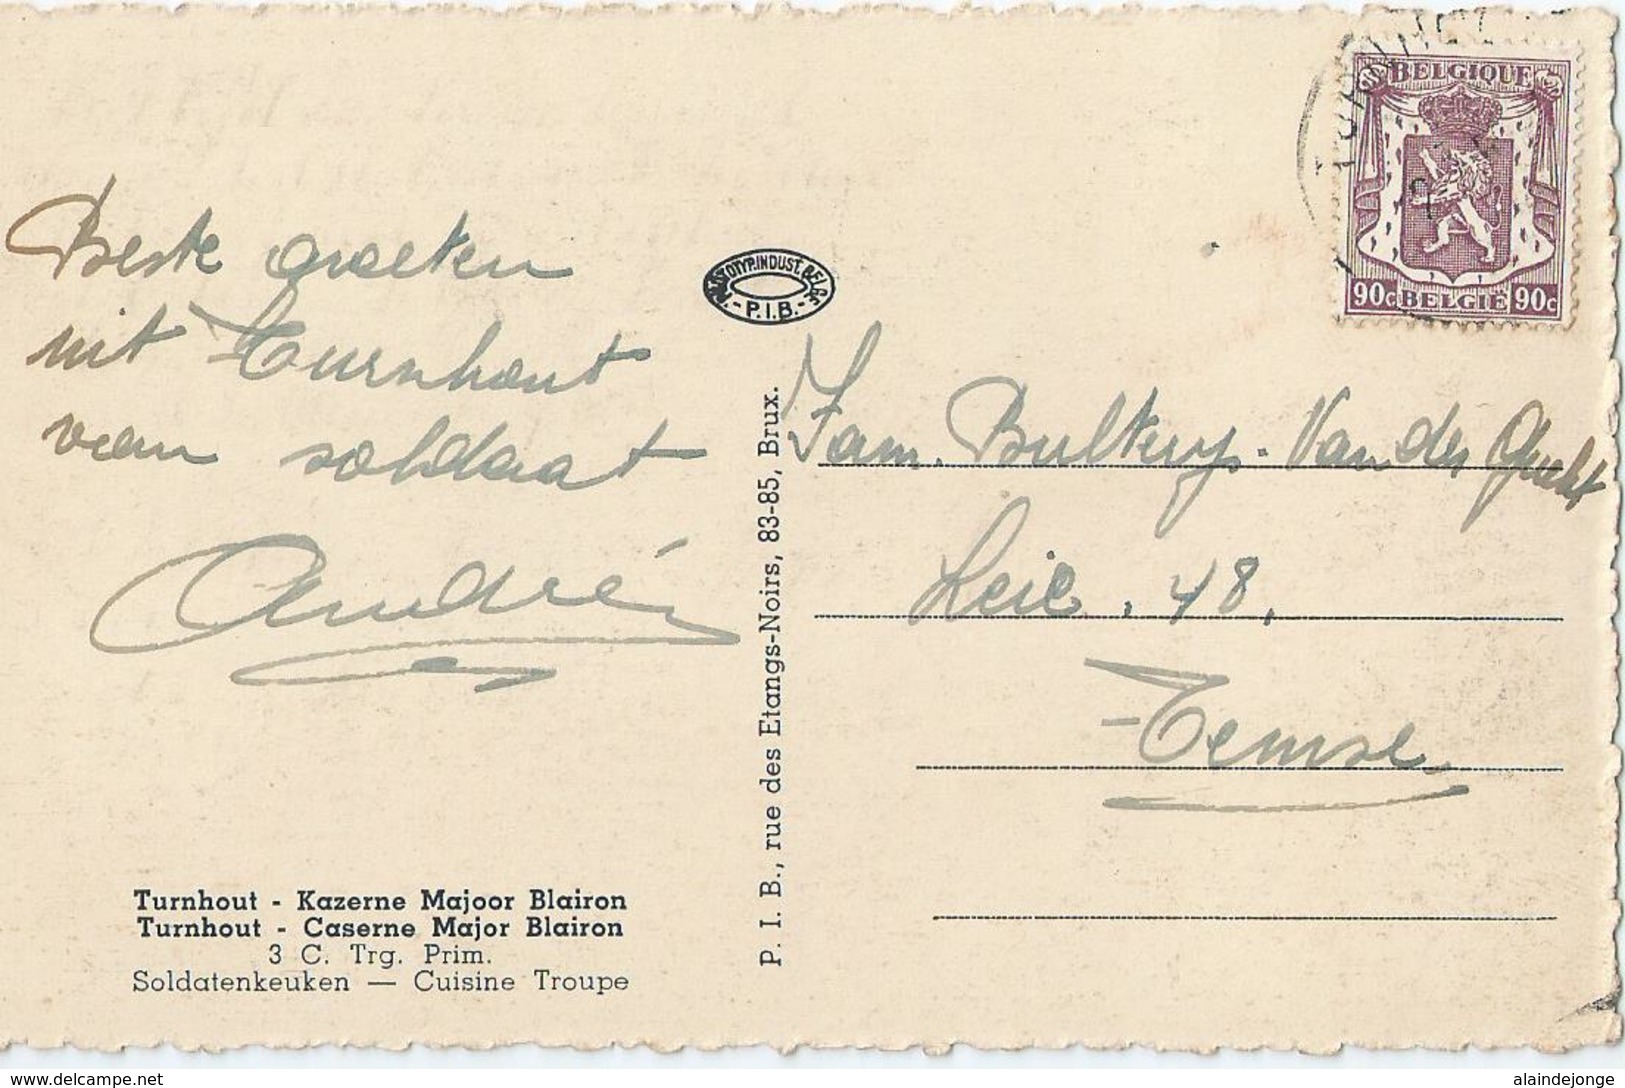 Beste groeten
uit Turnhout
van soldaat
André
Turnhout - Kazerne Majoor Blairon
Turnhout - Caserne Major Blairon
3 C. Trg. Prim.
Soldatenkeuken — Cuisine Troupe
P. I. B., rue des Etangs-Noirs, 83-85, Brux.
INDUST. BELGE
- P.I.B. -
BELGIQUE
90c BELGIE 90c
Fam. Bulterys - Van der Gucht
Leie. 48,
Temse
delcampe.net
alaindejonge